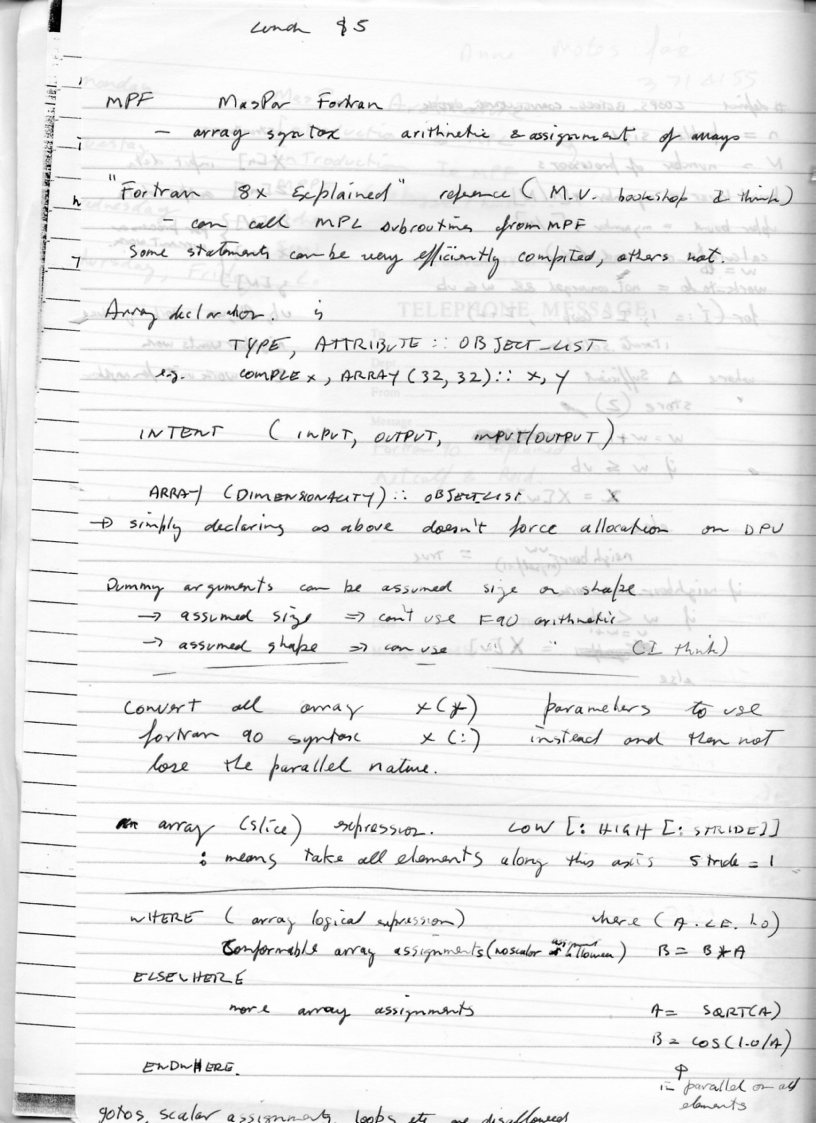 Lunch $5
MPF MasPar Fortran
– array syntax arithmetic & assignment of arrays
"Fortran 8x Explained" reference (M.V. bookshop I think)
– can call MPL subroutines from MPF
Some statements can be very efficiently compiled, others not.
Array declaration. is
TYPE, ATTRIBUTE :: OBJECT_LIST
e.g. COMPLEX, ARRAY (32, 32) :: X, Y
TELEPHONE MESSAGE
INTENT (INPUT, OUTPUT, INPUT/OUTPUT)
ARRAY (DIMENSIONALITY) :: OBJECTLIST
→ simply declaring as above doesn't force allocation on DPU
Dummy arguments can be assumed size or shape
→ assumed size ⇒ can't use F90 arithmetic
→ assumed shape ⇒ can use " (I think)
Convert all array x(*) parameters to use
fortran 90 syntax x(:) instead and then not
lose the parallel nature.
an array (slice) expression. LOW [: HIGH [: STRIDE]]
: means take all elements along this axis stride = 1
WHERE (array logical expression) where (A .LE. 1.0)
Conformable array assignments (no scalar allowed) B = B * A
ELSEWHERE
more array assignments A = SQRT(A)
B = COS(1.0/A)
ENDWHERE. ↑
in parallel on all
elements
gotos, scalar assignments, loops etc are disallowed